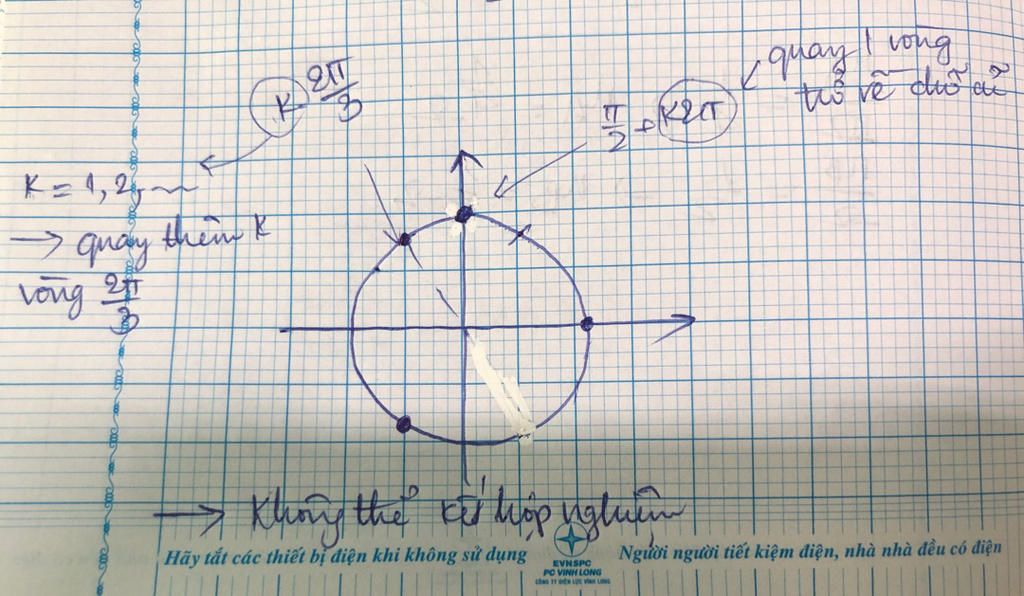 k 2π/3
quay 1 vòng
trở về chỗ cũ
π/2 + k2π
k = 1, 2, ...
→ quay thêm k
vòng 2π/3
→ Không thể kết hợp nghiệm
Hãy tắt các thiết bị điện khi không sử dụng
EVNSPC
PC VINH LONG
CÔNG TY ĐIỆN LỰC VĨNH LONG
Người người tiết kiệm điện, nhà nhà đều có điện